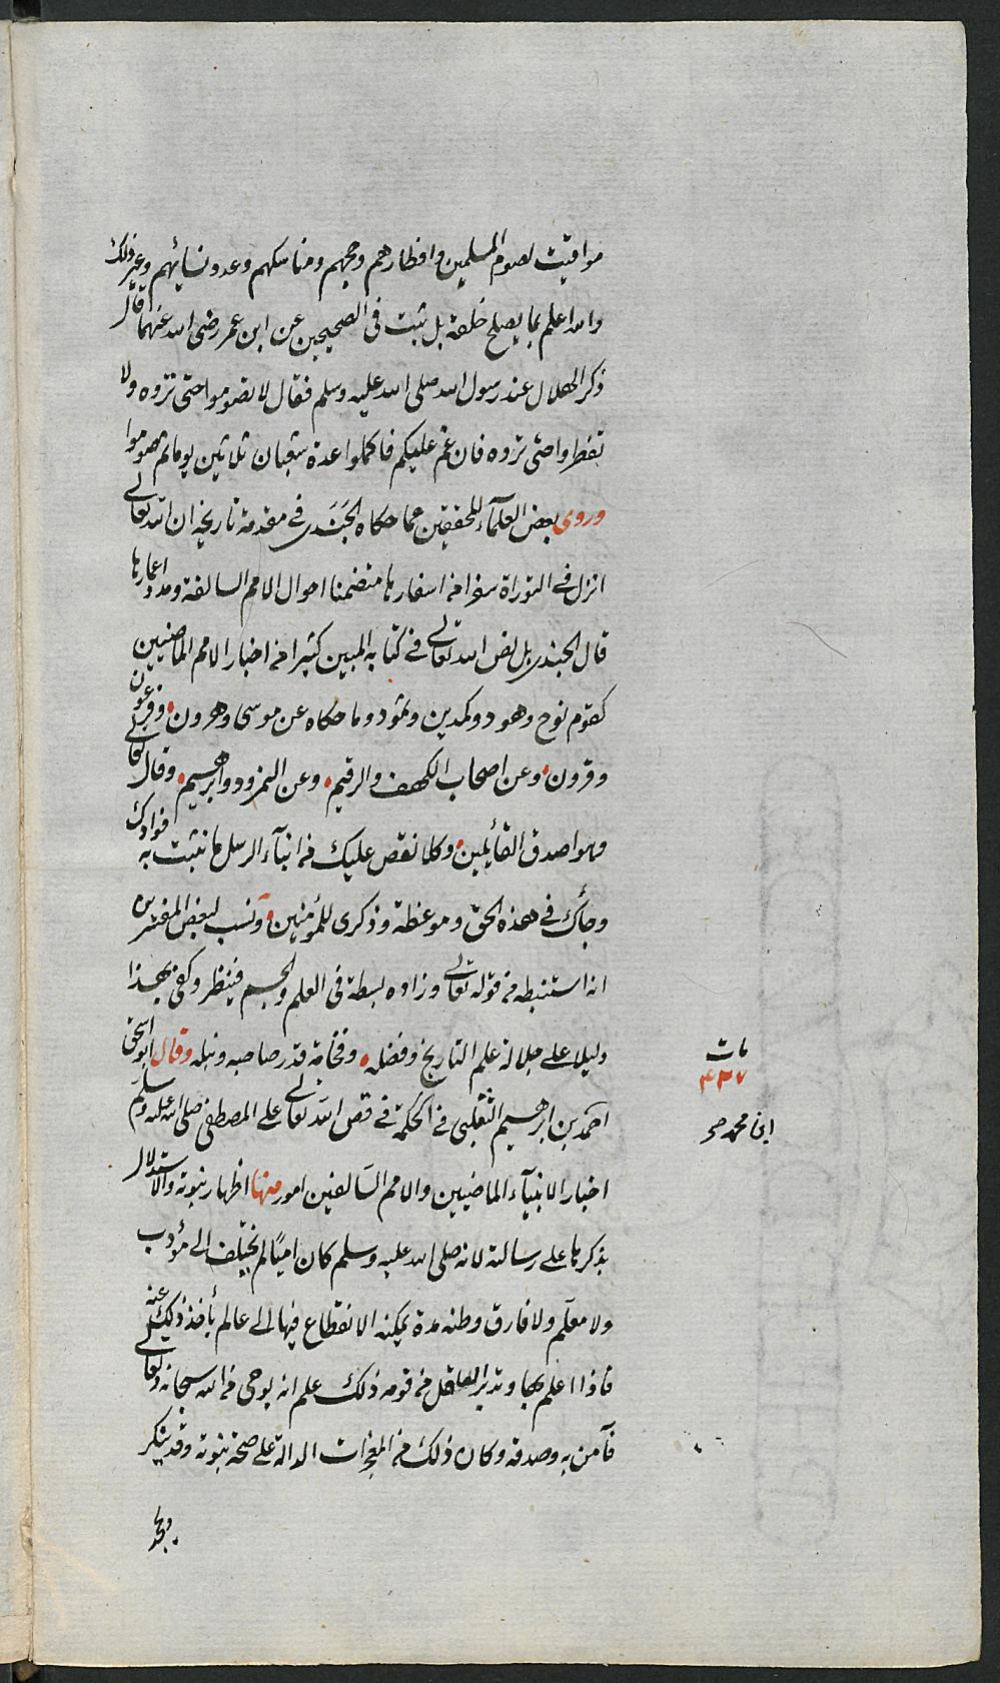 مواقيت لصوم المسلمين وافطارهم وحجهم ومناسكهم وعدد نسائهم وغير ذلك
والله اعلم بما يصلح خلقه بل ثبت فى الصحيحين عن ابن عمر رضى الله عنهما قال
ذكر الهلال عند رسول الله صلى الله عليه وسلم فقال لا تصوموا حتى تروه ولا
تفطروا حتى تروه فان غم عليكم فاكملوا عدة شعبان ثلاثين يوما ثم صوموا
وروى بعض العلمآء المحققين مما حكاه الجَنَدى فى مقدمة تاريخه ان الله تعالى
انزل فى التوراة سفرا من اسفارها متضمنا احوال الامم السالفة ومدد اعمارها
قال الجندى بل نص الله تعالى فى كتابه المبين كثيرا من اخبار الامم الماضيين
كقوم نوح وهود وكمدين وثمود وما حكاه عن موسى وهرون وفرعون
وقرون وعن اصحاب الكهف والرقيم وعن النمرود وابرهيم وقال تعالى
وهو اصدق القائلين وكلا نقص عليك من انبآء الرسل ما نثبت به فوادك
وجأك فى هذه الحق وموعظة وذكرى للمؤمنين ونسب لبعض المفسرين
انه استنبطه من قوله تعالى وزاده بسطة فى العلم والجسم فينظر وكفى بهذا
دليلا على جلالة علم التاريخ وفضله وفخامة قدر صاحبه ونبله وقال ابو اسحق
احمد بن ابرهيم الثعلبى فى الحكمة فى قص الله تعالى على المصطفى صلى الله عليه وسلم
اخبار الانبيآء الماضيين والامم السالفين امور منها اظهار نبوته والاستدلال
بذكرها على رسالته لانه صلى الله عليه وسلم كان اميًا لم يختلف الى مؤدب
ولا معلم ولا فارق وطنه مدة يمكنه الانقطاع فيها الى عالم يأخذ ذلك عنه
فاذا اعلم بها وتدبر العاقل من قومه ذلك علم انه يوحى من الله سبحانه وتعالى
فآمن به وصدقه وكان ذلك من المعجزات الدالة على صحة نبوته وقد ينكر
مات
٤٢٧